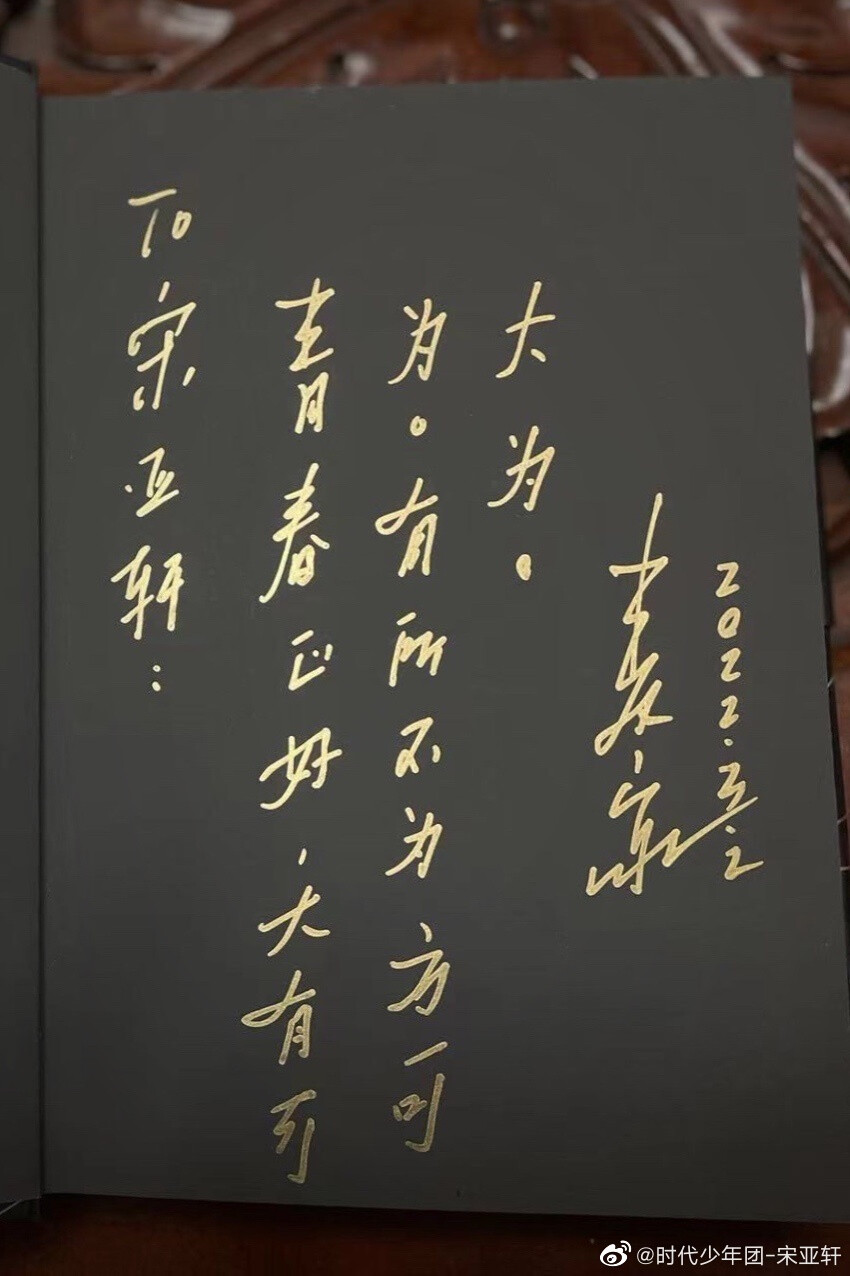 To 宋亚轩:
青春正好,大有可
为。有所不为方可
大为。
2022.3.2
@时代少年团-宋亚轩